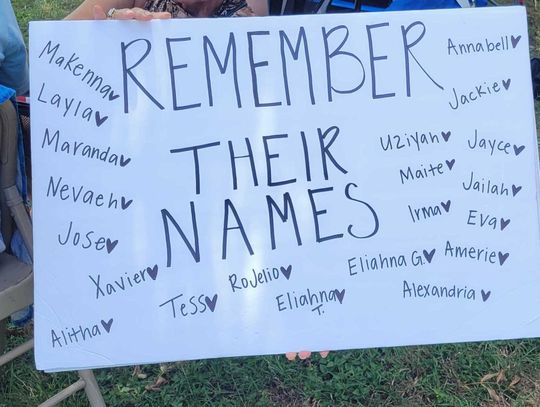 REMEMBER
THEIR
NAMES
Makenna♥
Layla♥
Maranda♥
Nevaeh♥
Jose♥
Xavier♥
Tess♥
RoJelio♥
Eliahna♥
T.
Alitha♥
Annabell♥
Jackie♥
Uziyah♥
Jayce♥
Maite♥
Jailah♥
Irma♥
Eva♥
Eliahna G.♥
Amerie♥
Alexandria♥